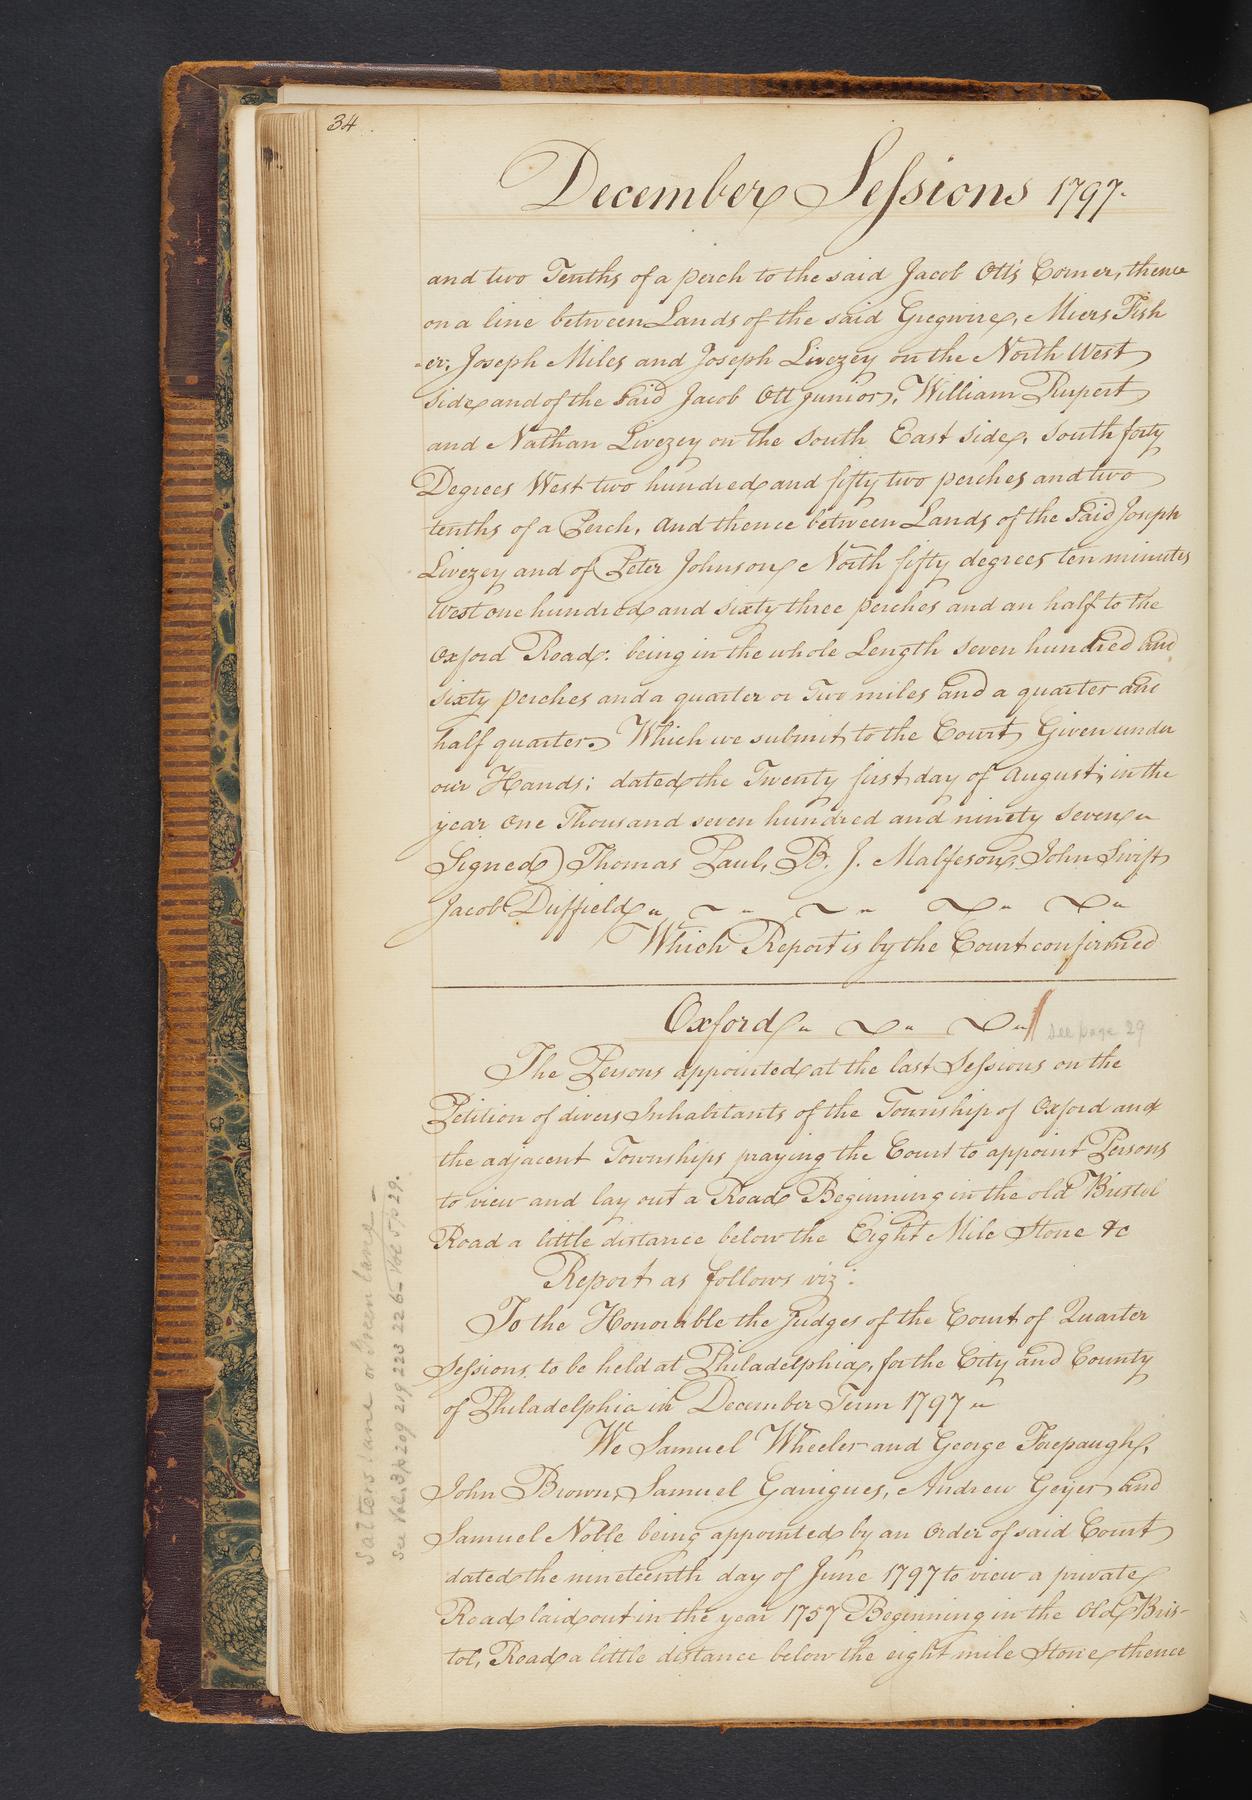 34
December Sessions 1797.
and two Tenths of a perch to the said Jacob Otts Corner, thence
on a line between Lands of the said Gregwire, Miers Fish
-er, Joseph Miles and Joseph Livezey on the North West
side and of the said Jacob Ott junior, William Rupert
and Nathan Livezey on the South East side, South forty
Degrees West two hundred and fifty two perches and two
tenths of a Perch, and thence between Lands of the said Joseph
Livezey and of Peter Johnson North fifty degrees ten minutes
West one hundred and sixty three perches and an half to the
Oxford Road: being in the whole Length seven hundred and
sixty perches and a quarter or Two miles and a quarter and
half quarter. Which we submit to the Court Given under
our Hands; dated the Twenty first day of August; in the
year One Thousand seven hundred and ninety seven
Signed) Thomas Paul, B. J. Malfeson, John Swift
Jacob Duffield
Which Report is by the Court confirmed
Oxford see page 29
The Persons appointed at the last Sessions on the
Petition of divers Inhabitants of the Township of Oxford and
the adjacent Townships praying the Court to appoint Persons
to view and lay out a Road Beginning in the old Bristol
Road a little distance below the Eight Mile Stone &c
Report as follows viz:
To the Honorable the Judges of the Court of Quarter
Sessions, to be held at Philadelphia, for the City and County
of Philadelphia in December Term 1797
We Samuel Wheeler and George Forepaugh,
John Brown, Samuel Garrigues, Andrew Geyer and
Samuel Noble being appointed by an Order of said Court
dated the nineteenth day of June 1797 to view a private
Road laid out in the year 1757 Beginning in the Old Bris-
tol, Road a little distance below the eight mile Stone thence
Salters lane or Green lane
See Vol. 3 p 209 219 223 226 - Vol 5 p 29.